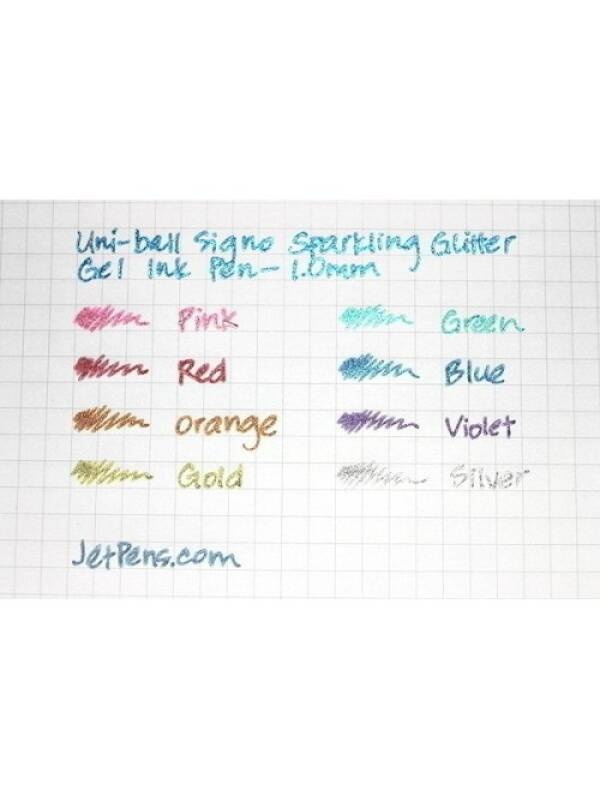 Uni-ball Signo Sparkling Glitter
Gel Ink Pen- 1.0mm
Pink Green
Red Blue
Orange Violet
Gold Silver
JetPens.com